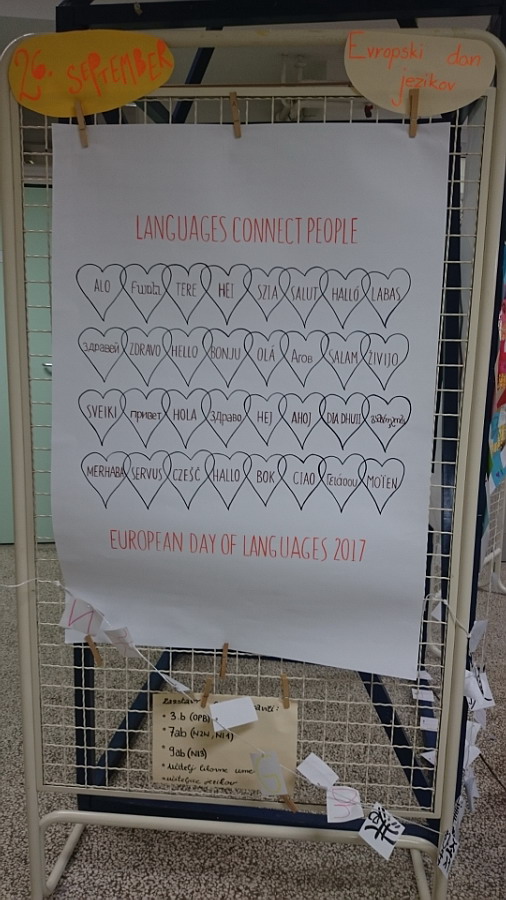 26. SEPTEMBER
Evropski dan
jezikov
LANGUAGES CONNECT PEOPLE
ALO TERE HEI SZIA SALUT HALLÓ LABAS
Здравей ZDRAVO HELLO BONJU OLÁ SALAM ŽIVIJO
SVEIKI привет HOLA Здраво HEJ AHOJ DIA DHUIT
MERHABA SERVUS CZEŚĆ HALLO BOK CIAO MOÏEN
EUROPEAN DAY OF LANGUAGES 2017
• 3.b (OPB)
7ab (N2N, N1A)
• 9ab (N1S)